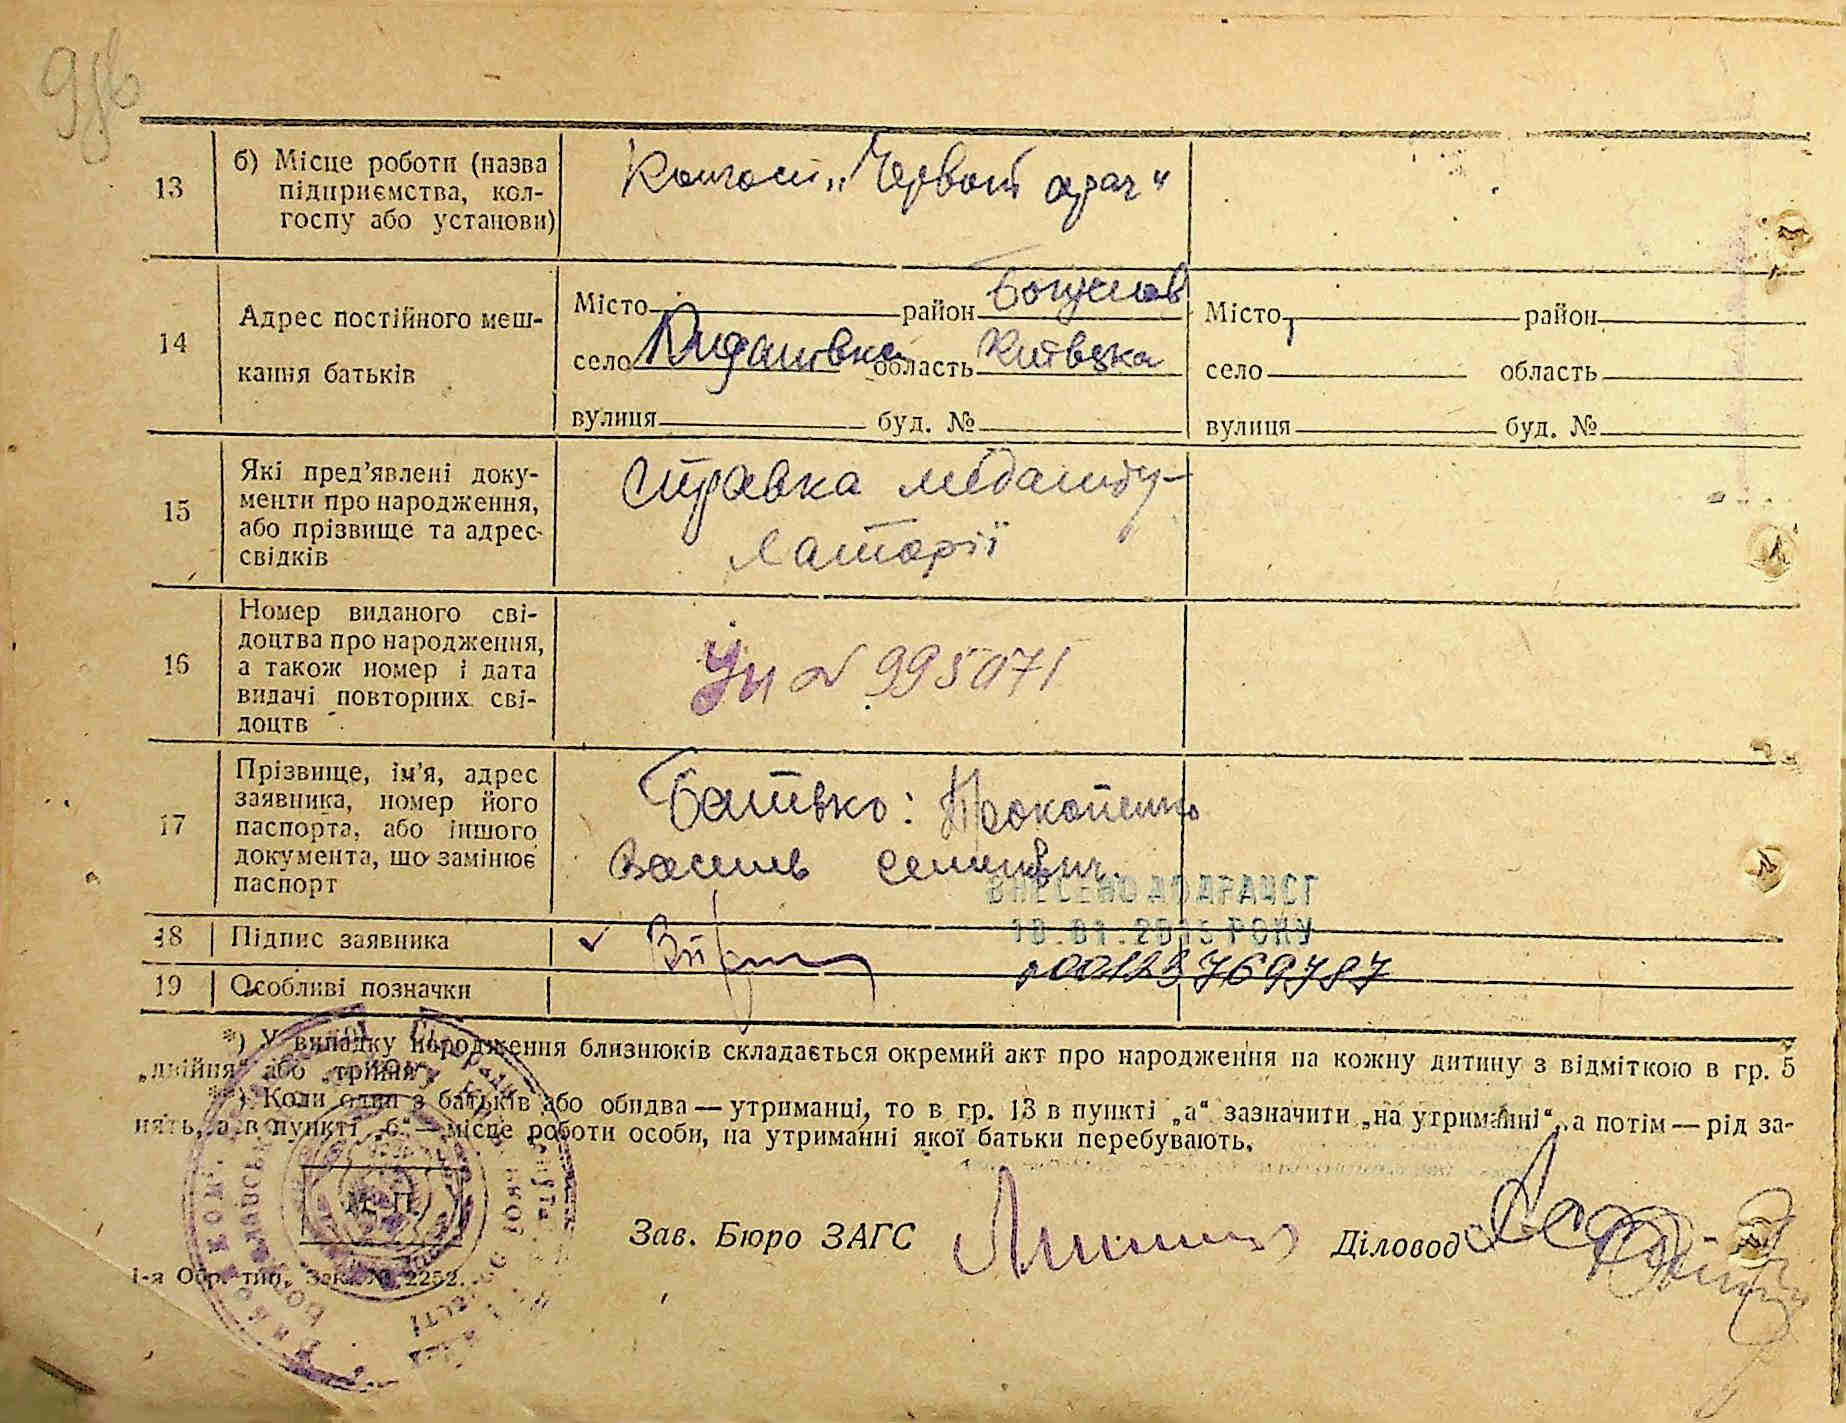 13
б) Місце роботи (назва
підприємства, кол-
госпу або установи)
Колгосп „Червоний орач“
14
Адрес постійного меш-
кання батьків
Місто район Богуслав
село область Київська
вулиця буд. №
Місто район
село область
вулиця буд. №
15
Які пред’явлені доку-
менти про народження,
або прізвище та адрес-
свідків
Справка медамбу-
латорії
16
Номер виданого сві-
доцтва про народження,
а також номер і дата
видачі повторних сві-
доцтв
995071
17
Прізвище, ім’я, адрес
заявника, номер його
паспорта, або іншого
документа, що замінює
паспорт
Батько: Прокопенко
Василь Семенович.
ВНЕСЕНО ДО ДРАЦСГ
РОКУ
18
Підпис заявника
00123769787
19
Особливі позначки
*) У випадку народження близнюків складається окремий акт про народження на кожну дитину з відміткою в гр. 5
„двійня“ або „трійня“.
**) Коли один з батьків або обидва — утриманці, то в гр. 13 в пункті „а“ зазначити „на утриманні“, а потім — рід за-
нять, а в пункті „б“ — місце роботи особи, на утриманні якої батьки перебувають.
М. П.
Зав. Бюро ЗАГС
Діловод
1-я Обр. тип. Зак. № 2252.